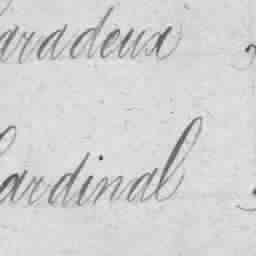 aradeux
ardinal